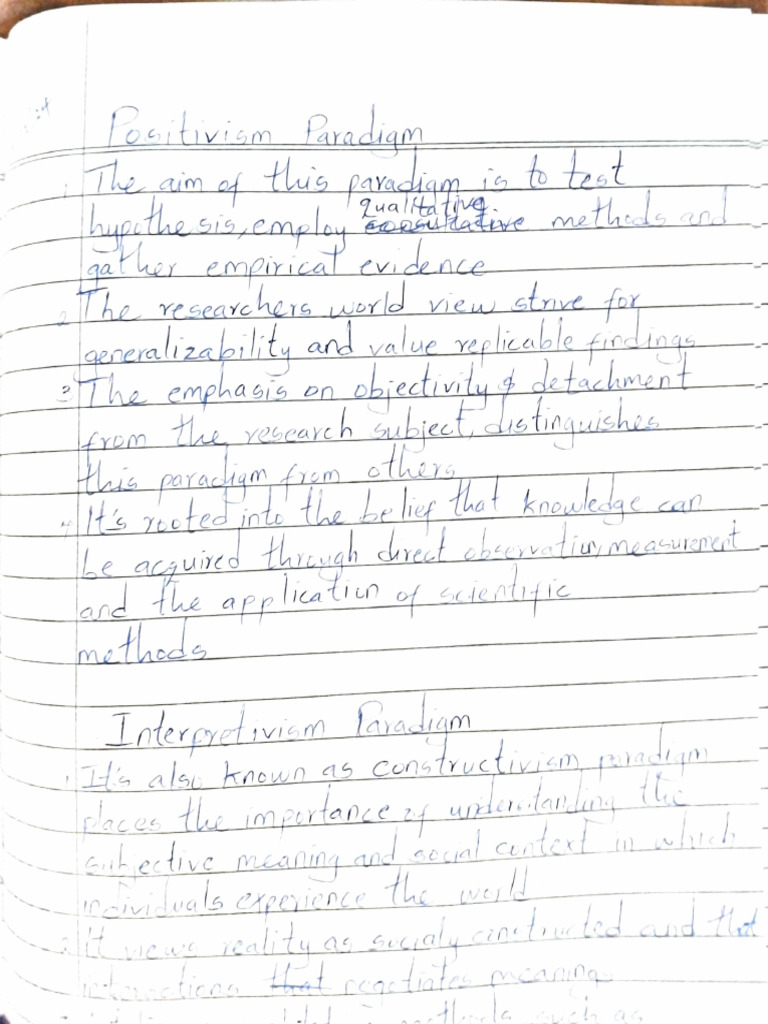 Positivism Paradigm
1 The aim of this paradigm is to test
qualitative
hypothesis, employ methods and
gather empirical evidence
2 The researchers world view strive for
generalizability and value replicable findings
3 The emphasis on objectivity & detachment
from the research subject, distinguishes
this paradigm from others
4 It's rooted into the belief that knowledge can
be acquired through direct observation, measurement
and the application of scientific
methods
Interpretivism Paradigm
1 It's also known as constructivism paradigm
places the importance of understanding the
subjective meaning and social context in which
individuals experience the world
2 It views reality as socialy constructed and that
interactions that negotiates meaning
methods such as